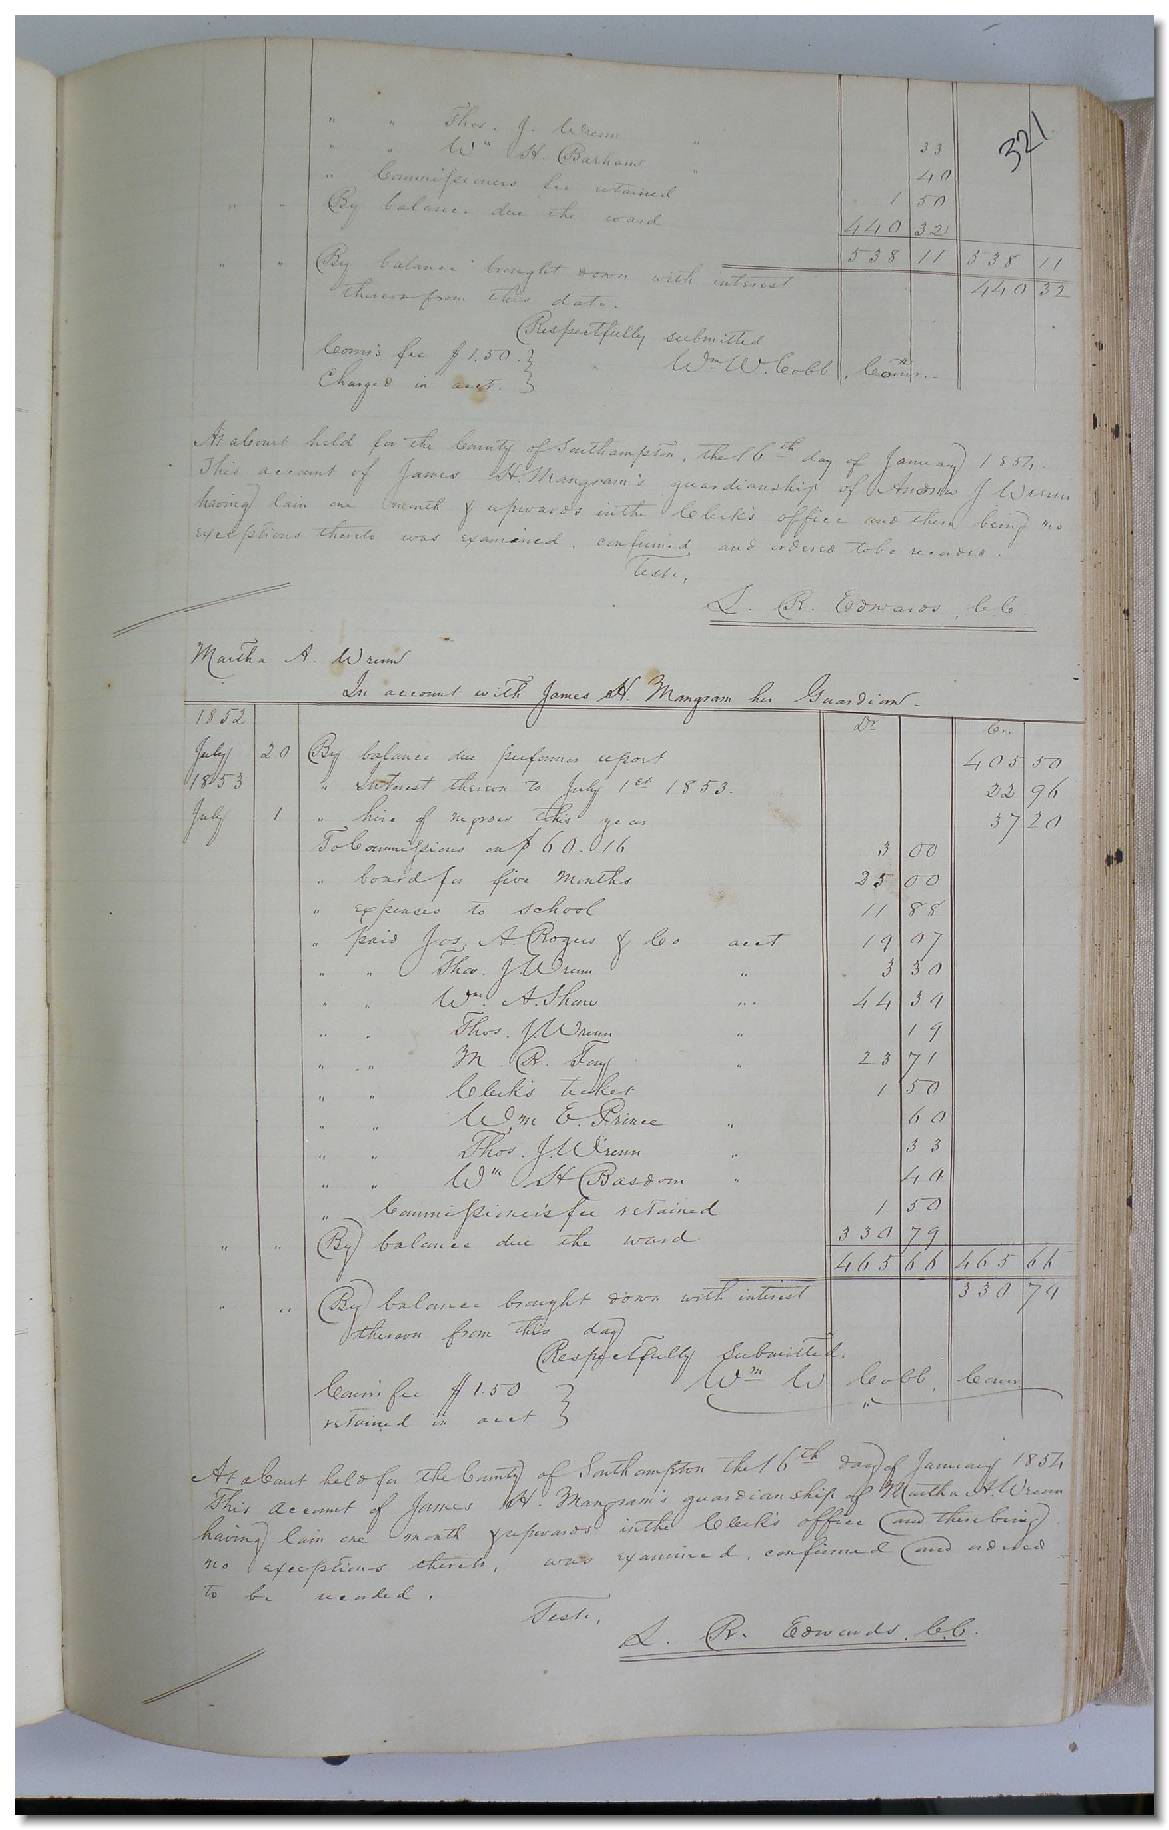 321
" " Thos. J. Wrenn " 33
" " Wm H. Barham " 40
" Commissioners fee retained 1 50
" " By balance due the ward 440 32
538 11 538 11
" " By balance brought down with interest 440 32
thereon from this date.
Respectfully submitted
Com's fee $1.50 } Wm W. Cobb, Comr.
Charged in acct. }
At a Court held for the County of Southampton, the 16th day of January 1854.
This account of James H. Mangram's guardianship of J Wrenn
having lain one month & upwards in the Clerk's office and there being no
exceptions thereto was examined, confirmed, and ordered to be recorded.
Teste,
L. R. Edwards, C.C.
Martha A. Wrenn
In account with James H. Mangram her Guardian.
1852 Dr Cr.
July 20 By balance due per former report 405 50
1853 " Interest thereon to July 1st 1853. 22 96
July 1 " hire of negroes this year 37 20
To Commissions on $60.16 3 00
" board for five months 25 00
" expenses to school 11 88
" paid Jos. A Rogers & Co acct 19 07
" " Thos. J. Wrenn " 3 30
" " Wm. A. Shaw " 44 39
" " Thos. J. Wrenn " 19
" " M R. Fay " 23 71
" " Clerk's ticket 1 50
" " Wm E. Prince " 60
" " Thos. J. Wrenn " 33
" " Wm H Basdom " 40
" Commissioner's fee retained 1 50
" " By balance due the ward 330 79
465 66 465 66
" " By balance brought down with interest 330 79
thereon from this day
Respectfully Submitted.
Com's fee $1.50 } Wm W Cobb, Comr
retained in acct }
At a Court held for the County of Southampton the 16th day of January 1854
This account of James H. Mangram's guardianship of Martha A. Wrenn
having lain one month & upwards in the Clerk's office and there being
no exceptions thereto, was examined, confirmed and ordered
to be recorded.
Teste,
L. R. Edwards, C.C.